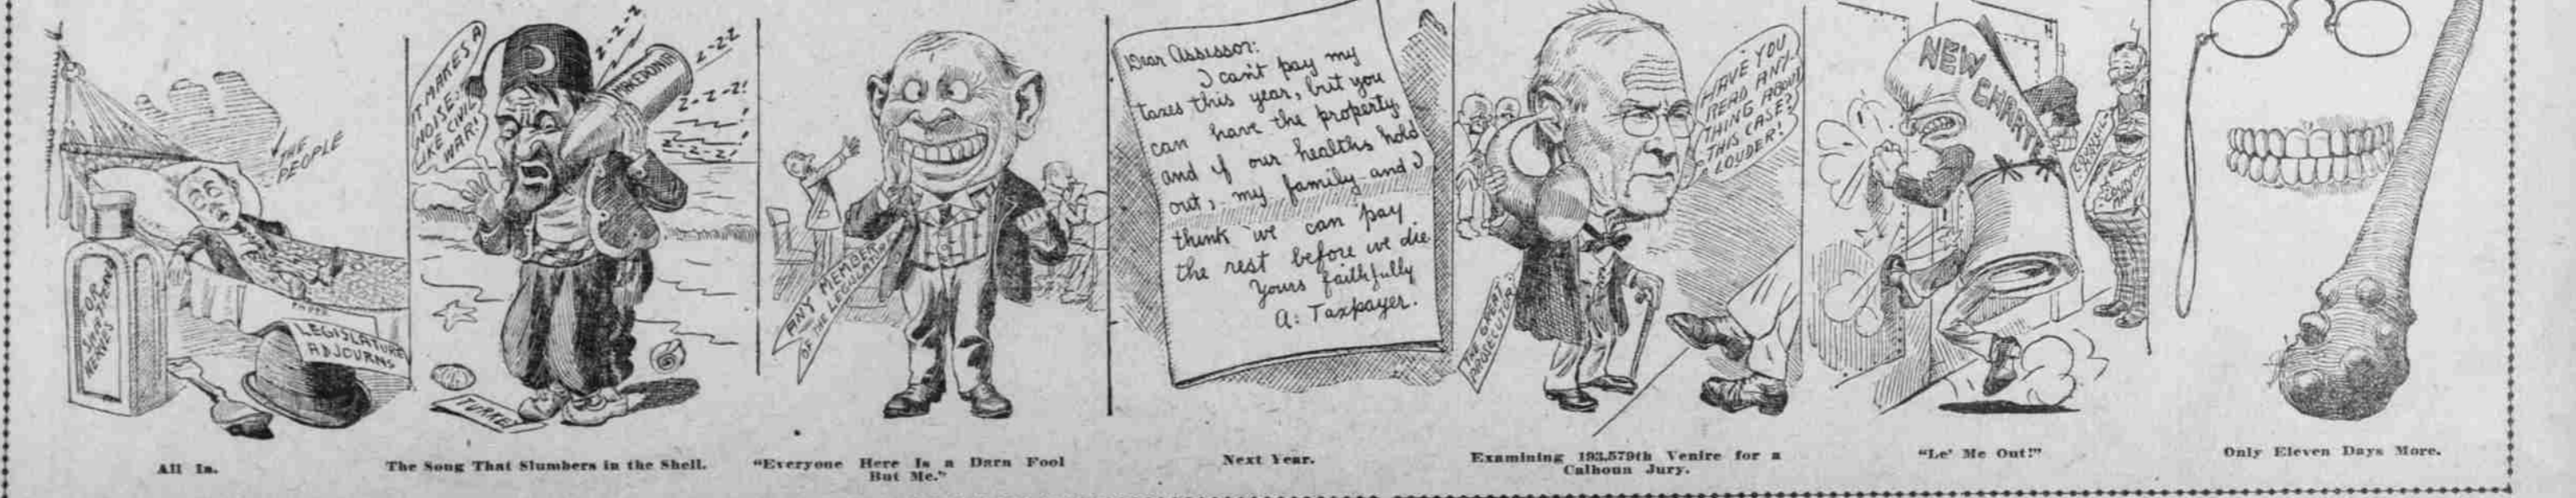 THE
PEOPLE
FOR
SHATTERED
NERVES
PAPER
LEGISLATURE
ADJOURNS
All In.
IT MAKES A
NOISE
LIKE CIVIL
WAR!
Z-Z-Z
Z-ZZ
Z-Z-Z!
Z-Z-Z!
MACEDONIA
TURKEY
The Song That Slumbers in the Shell.
ANY MEMBER
OF THE LEGISLATURE
"Everyone Here Is a Darn Fool
But Me."
Dear Assessor:
I can't pay my
taxes this year, but you
can have the property,
and if our healths hold
out, my family and I
think we can pay
the rest before we die.
Yours faithfully
A. Taxpayer.
Next Year.
HAVE YOU
READ ANY-
THING ABOUT
THIS CASE?
LOUDER!
THE GREAT
PROSECUTOR!
Examining 193,579th Venire for a
Calhoun Jury.
NEW
CHARTER
COUNCIL
"Le' Me Out!"
Only Eleven Days More.